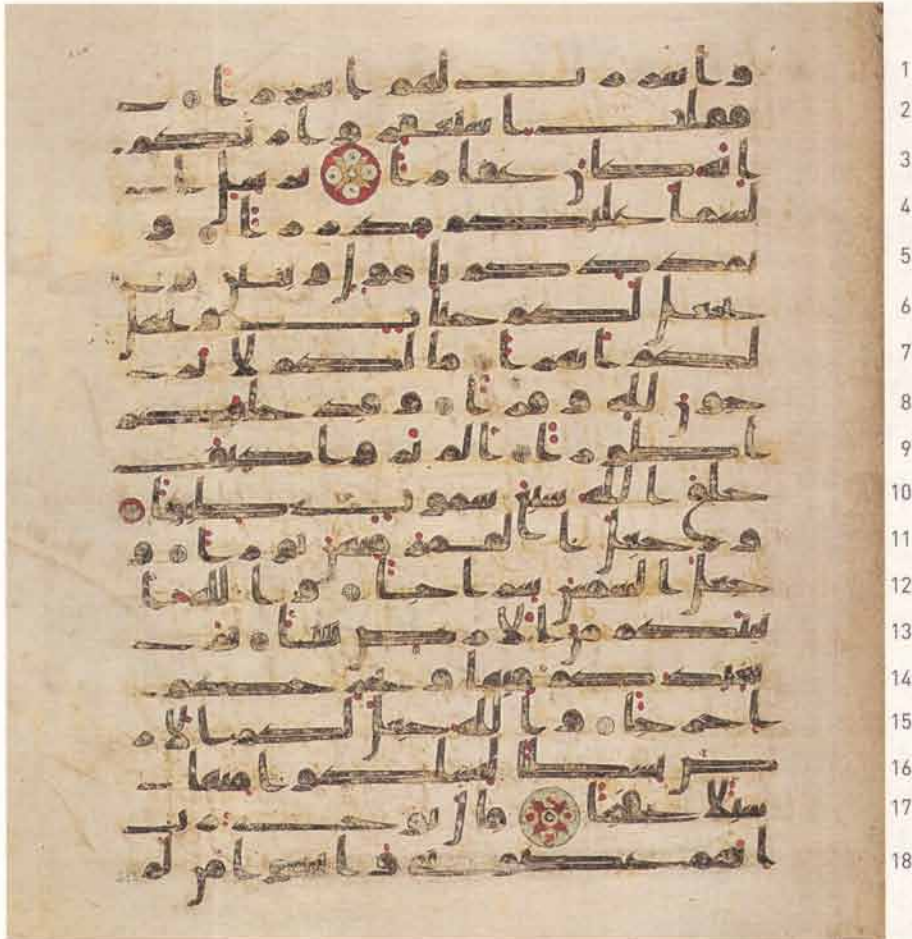 1 واسررت لهم اسرارا
2 فقلت استغفروا ربكم
3 انه كان غفارا يرسل ا
4 لسما عليكم مدرارا و
5 يمددكم بامول وبنين و
6 يجعل لكم جنت ويجعل
7 لكم انهرا ما لكم لا تر
8 جون لله وقارا وقد خلقكم
9 اطوارا الم تروا كيف
10 خلق الله سبع سموت طباقا
11 وجعل القمر فيهن نورا و
12 جعل الشمس سراجا والله ا
13 نبتكم من الارض نباتا ثم
14 يعيدكم فيها ويخرجكم
15 اخراجا والله جعل لكم الار
16 ض بساطا لتسلكوا منها
17 سبلا فجاجا قال نوح رب
18 انهم عصوني واتبعوا من لم